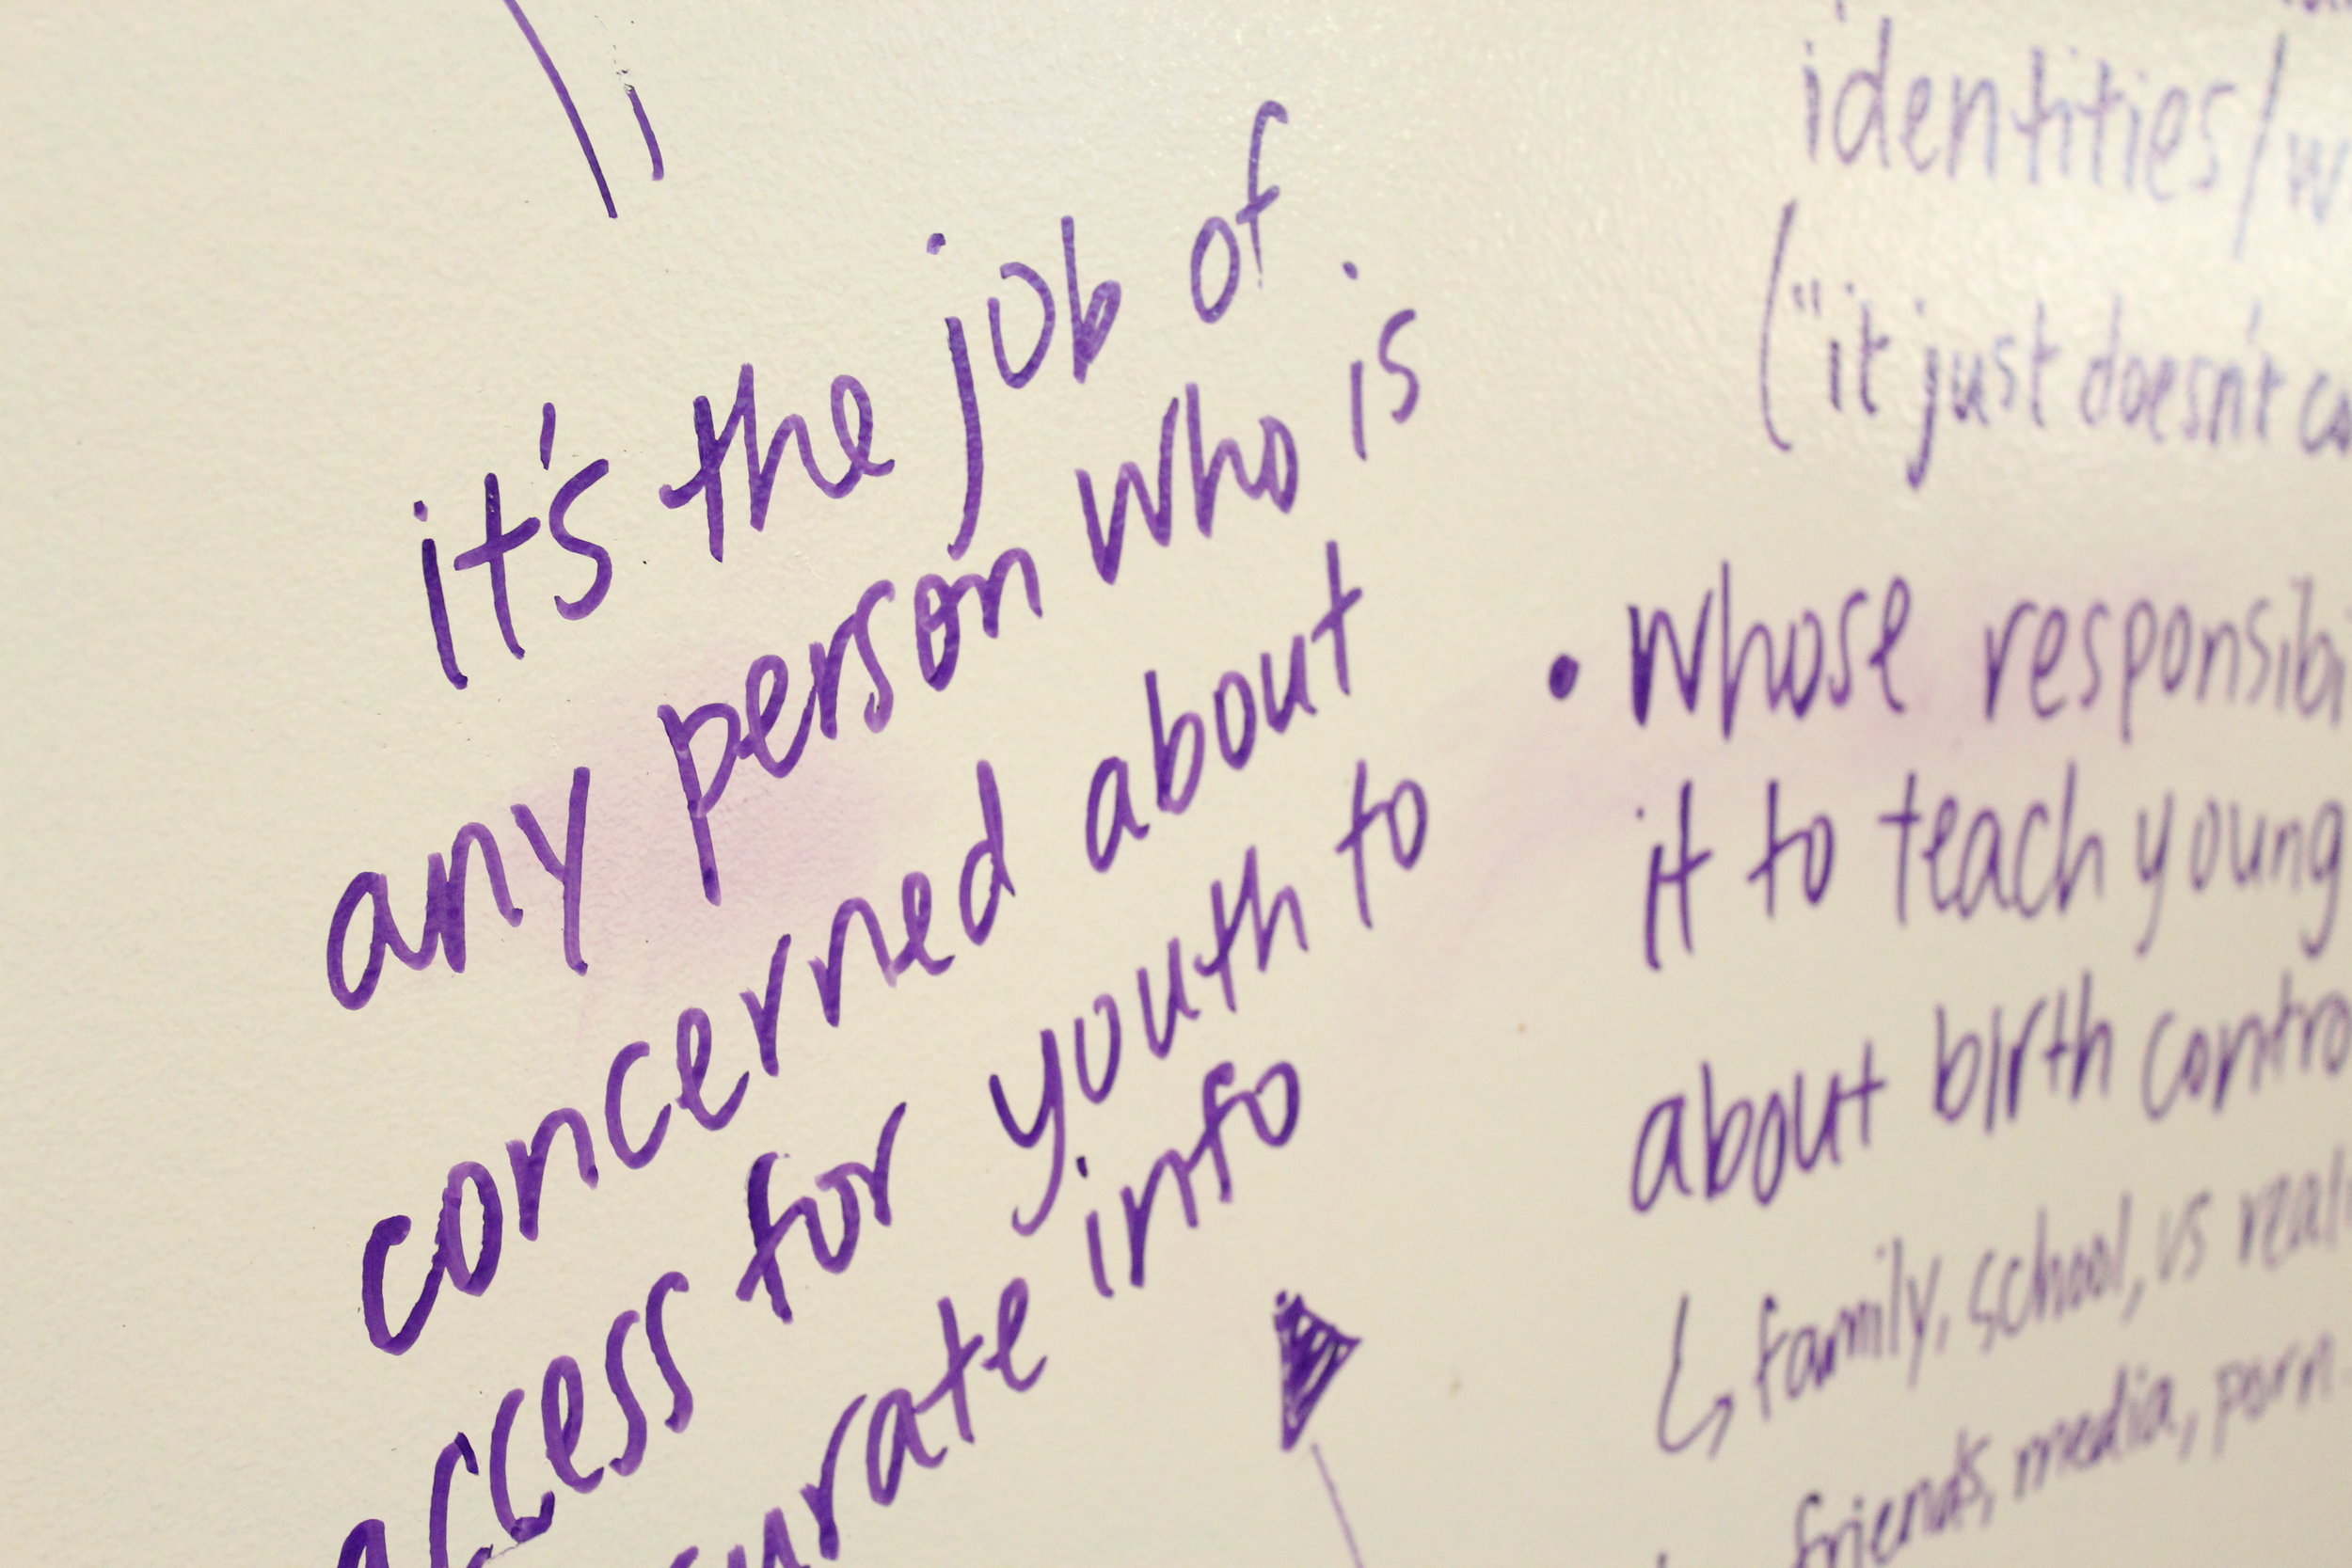 it's the job of
any person who is
concerned about
access for youth to
info
identities/
("it just doesn't
• whose
it to teach young
about birth
↳ family, school, us
friends, media, porn